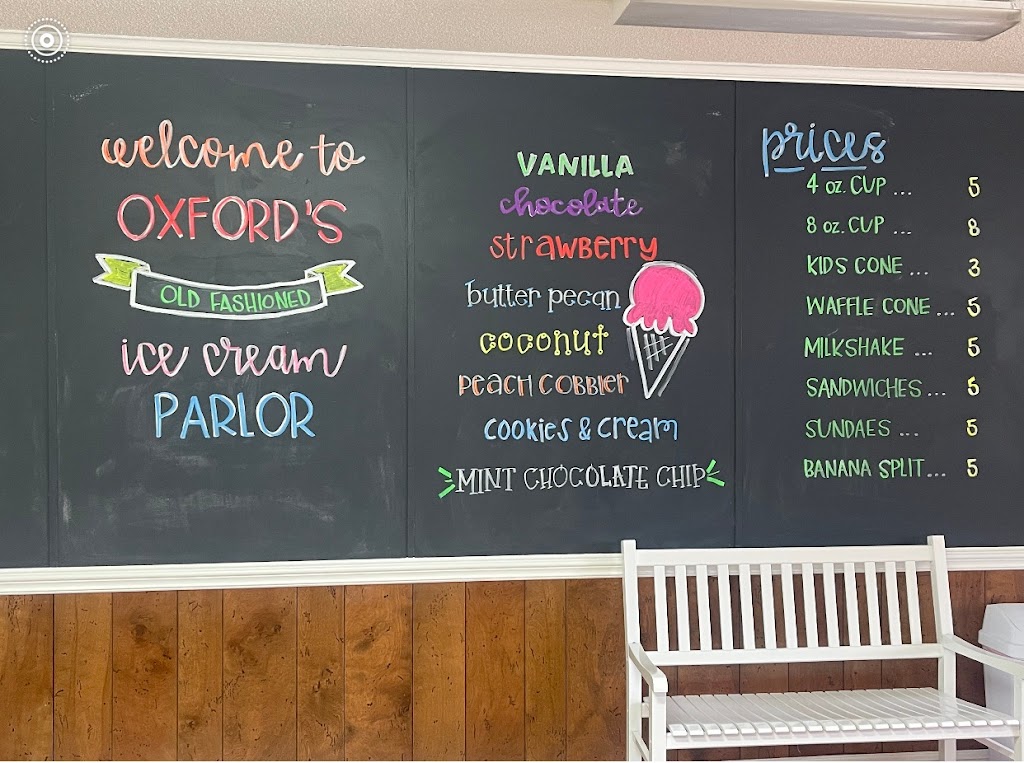 welcome to
OXFORD'S
OLD FASHIONED
ice cream
PARLOR
VANILLA
chocolate
strawberry
butter pecan
coconut
PEACH COBBLER
cookies & cream
MINT CHOCOLATE CHIP
prices
4 oz. CUP ... 5
8 oz. CUP ... 8
KIDS CONE ... 3
WAFFLE CONE ... 5
MILKSHAKE ... 5
SANDWICHES ... 5
SUNDAES ... 5
BANANA SPLIT ... 5